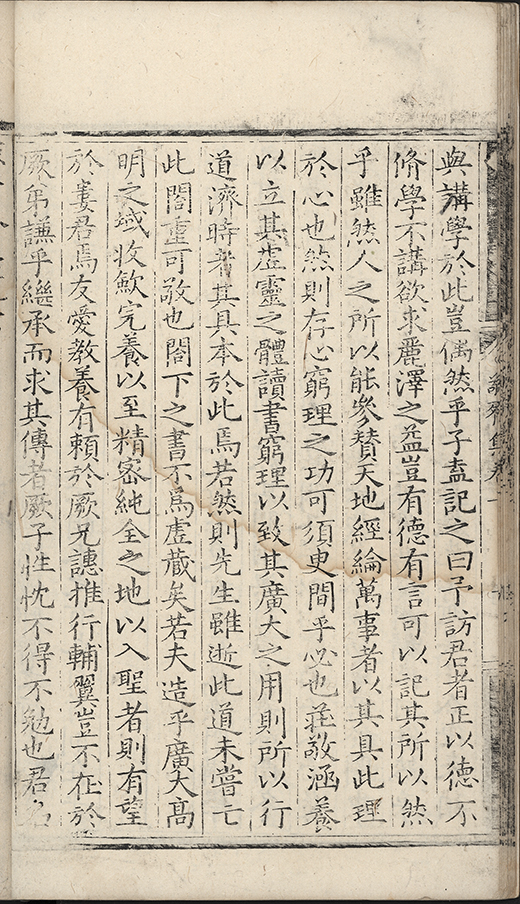 與講學於此豈偶然乎子盍記之曰予訪君者正以德不
脩學不講欲求麗澤之益豈有德有言可以記其所以然
乎雖然人之所以能參贊天地經綸萬事者以其具此理
於心也然則存心窮理之功可須臾間乎必也莊敬涵養
以立其虛靈之體讀書窮理以致其廣大之用則所以行
道濟時者其具本於此焉若然則先生雖逝此道未嘗亡
此閣重可敬也閣下之書不爲虛藏矣若夫造乎廣大高
明之域收歛完養以至精密純全之地以入聖者則有望
於婁君焉友愛教養有頼於厥兄謙推行輔翼豈不在於
厥弟謙乎繼承而求其傳者厥子性忱不得不勉也君名